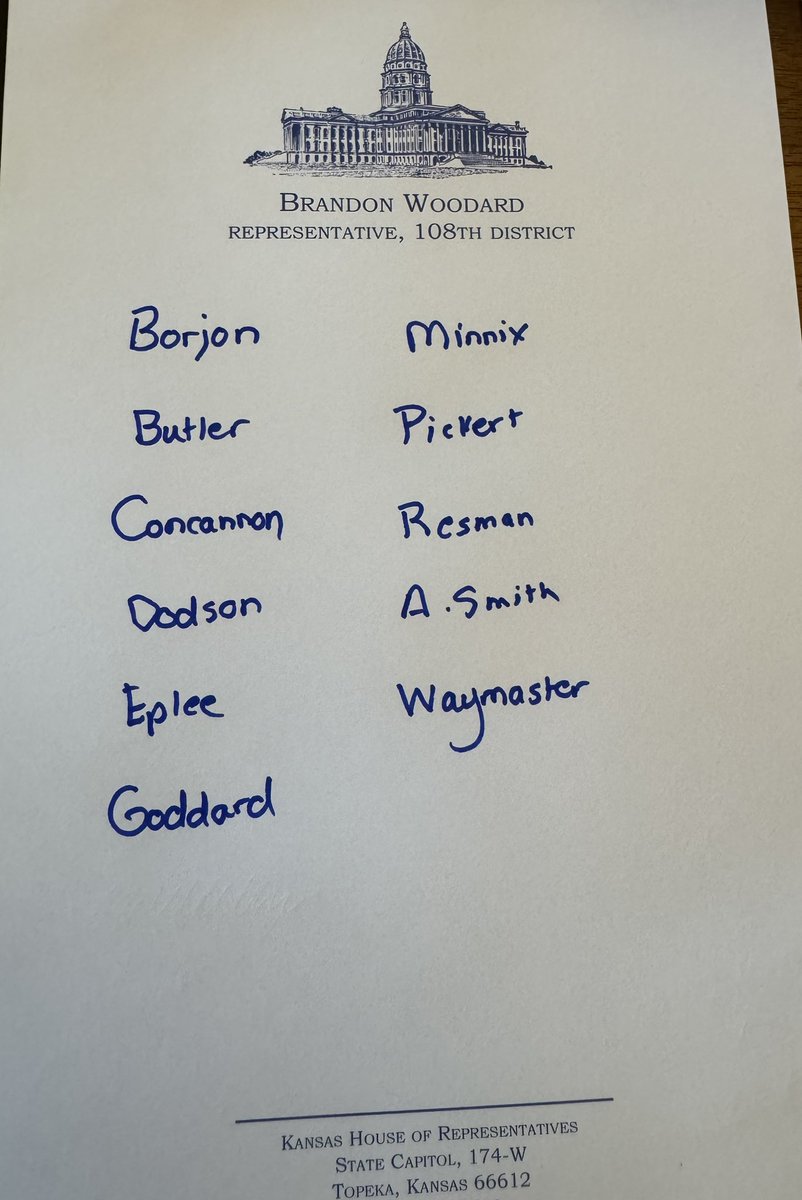 BRANDON WOODARD
REPRESENTATIVE, 108TH DISTRICT
Borjon
Butler
Concannon
Dodson
Eplee
Goddard
Minnix
Pickert
Resman
A. Smith
Waymaster
KANSAS HOUSE OF REPRESENTATIVES
STATE CAPITOL, 174-W
TOPEKA, KANSAS 66612